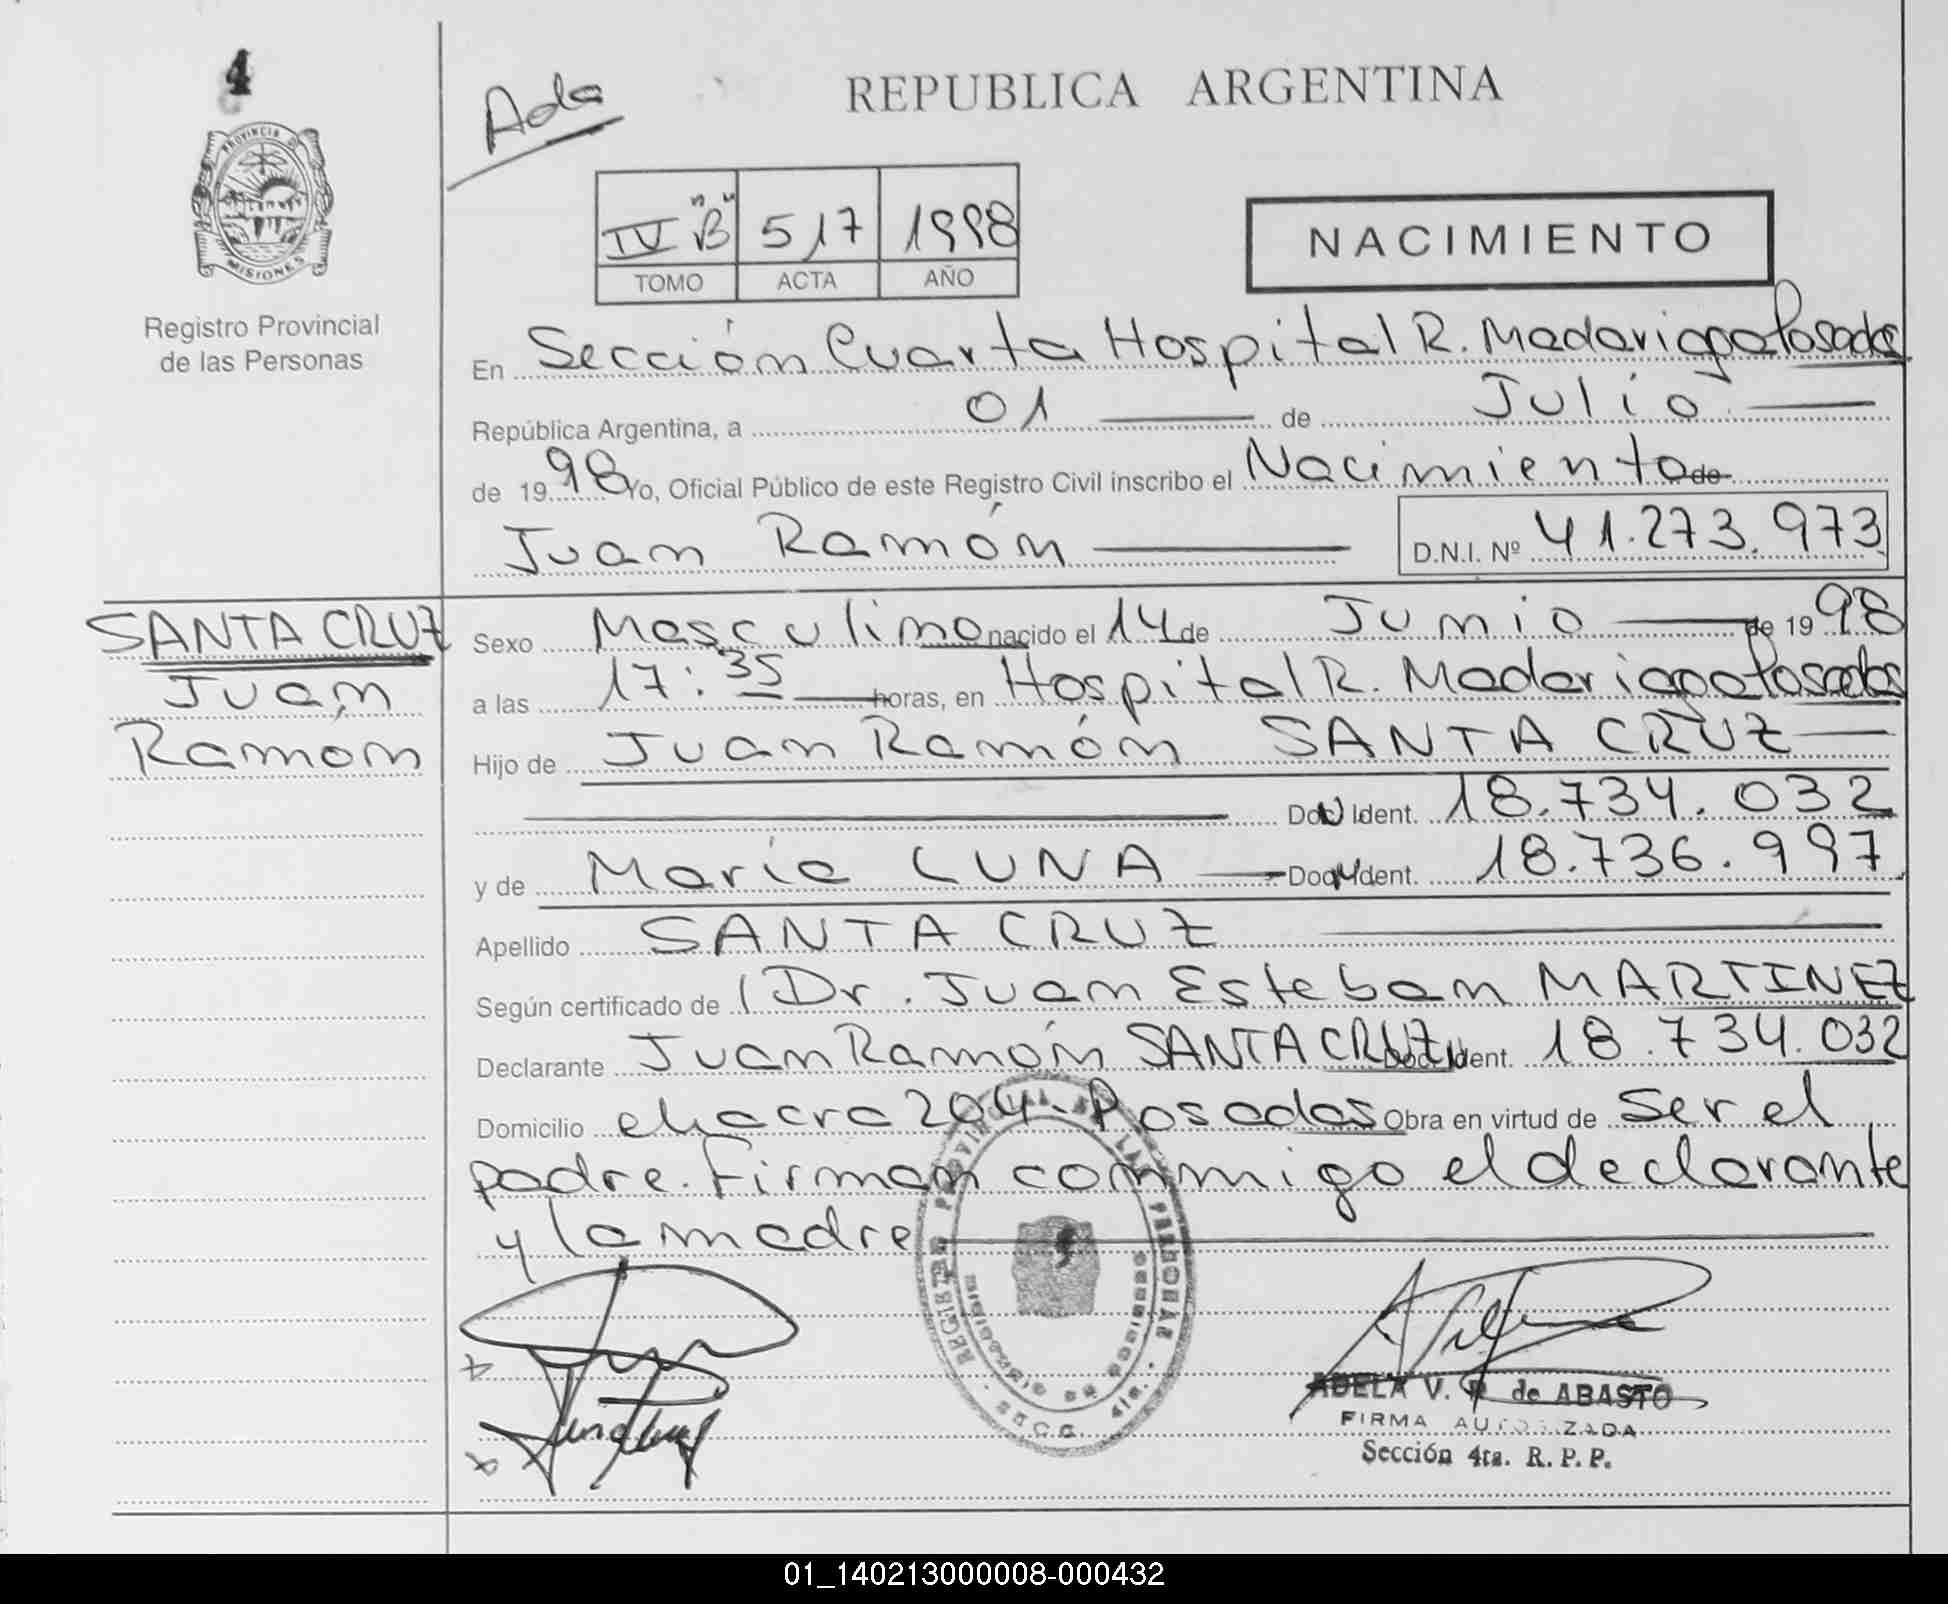 4
Ada
REPUBLICA ARGENTINA
PROVINCIA DE
MISIONES
Registro Provincial
de las Personas
IV "B" 517 1998
TOMO ACTA AÑO
NACIMIENTO
En Sección Cuarta Hospital R. Madariaga Posadas
República Argentina, a 01 de Julio
de 1998 Yo, Oficial Público de este Registro Civil inscribo el Nacimiento de
Juan Ramón D.N.I. Nº 41.273.973
SANTA CRUZ
Juan
Ramón
Sexo Masculino nacido el 14 de Junio de 1998
a las 17:35 horas, en Hospital R. Madariaga Posadas
Hijo de Juan Ramón SANTA CRUZ
Doc. Ident. 18.734.032
y de María LUNA Doc. Ident. 18.736.997
Apellido SANTA CRUZ
Según certificado de Dr. Juan Esteban MARTINEZ
Declarante Juan Ramón SANTA CRUZ Doc. Ident. 18.734.032
Domicilio chacra 204 - Posadas Obra en virtud de Ser el
padre. Firman conmigo el declarante
y la madre
REGISTRO PROVINCIAL DE LAS PERSONAS
SECC. 4ta.
ADELA V. P. de ABASTO
FIRMA AUTORIZADA
Sección 4ta. R. P. P.
01_140213000008-000432